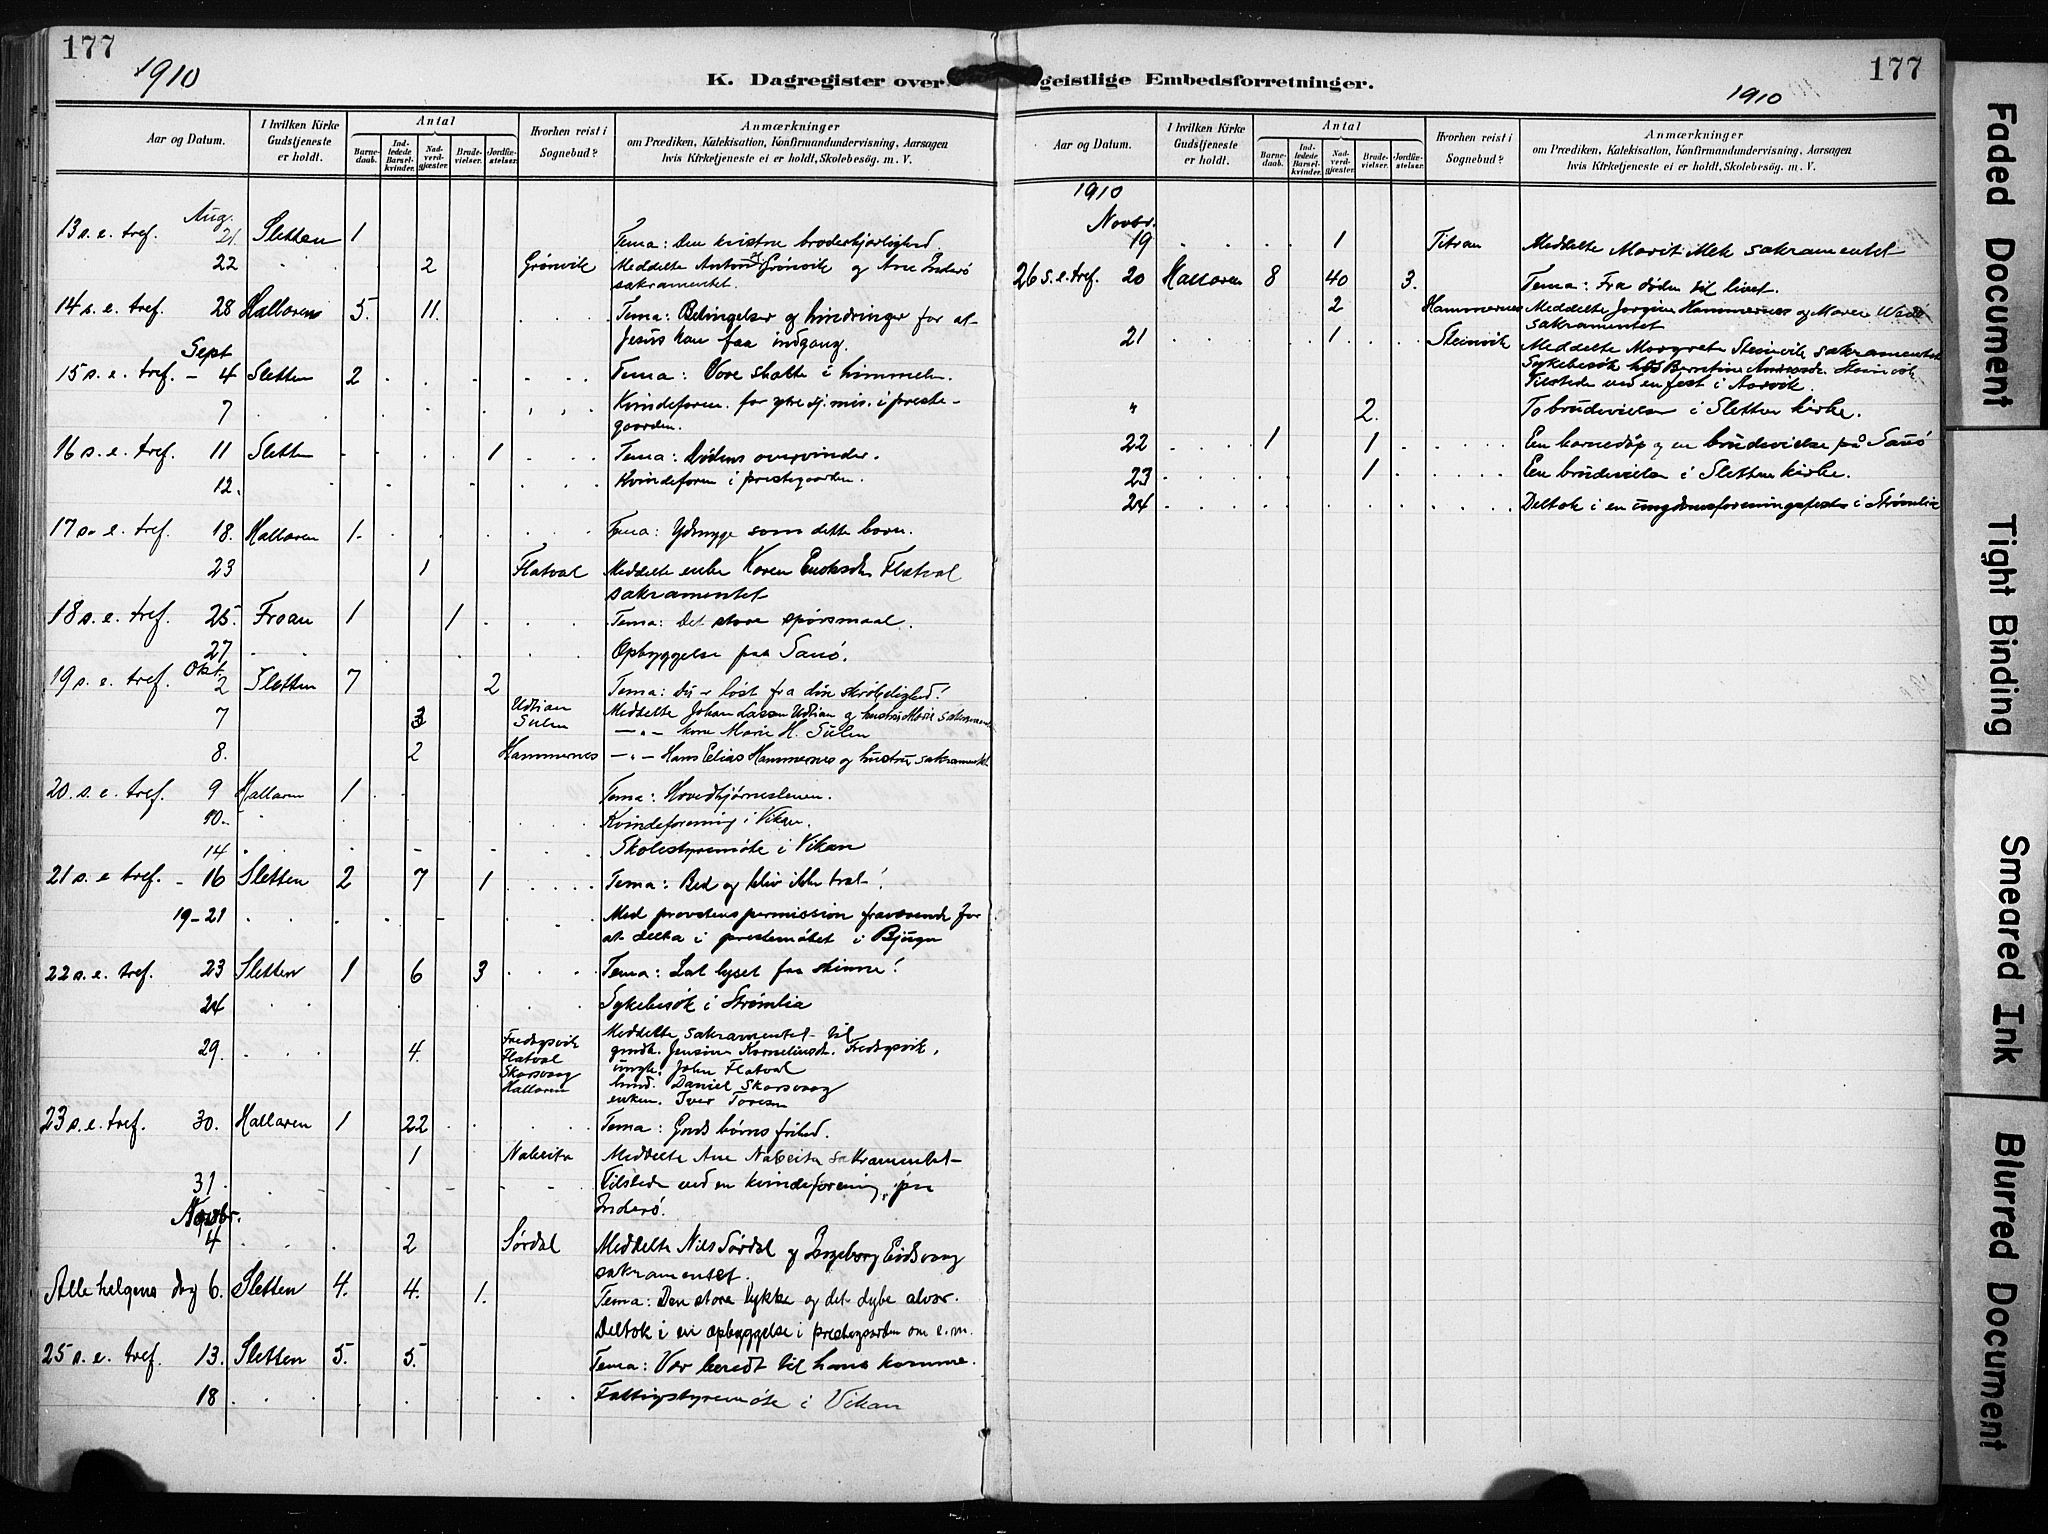 177
1910
K. Dagregister over geistlige Embedsforretninger.
177
1910
Aar og Datum.
I hvilken Kirke Gudstjeneste er holdt.
Antal
Barnedaab.
Indledede Barselkvinder.
Nadverdgjæster.
Brudevielser.
Jordfæstelser.
Hvorhen reist i Sognebud?
Anmærkninger
om Prædiken, Katekisation, Konfirmandundervisning, Aarsagen
hvis Kirketjeneste ei er holdt, Skolebesøg. m. V.
Aug.
13 s. e. tref. 21. Sletten 1 Tema: Den kristne broderkjærlighed.
22 2 Grønvik Meddelte Anton Grönvik og Ane Inderö
sakramentet.
14 s. e. tref. 28 Hallaren 5. 11. Tema: Betingelser og hindringer for at
Jesus kan faa indgang.
Sept
15 s. e. tref. - 4 Sletten 2 Tema: Vore skatte i himmelen.
7 Kvindeforen. for ytre sj. mis. i preste-
gaarden.
16 s. e. tref. 11 Sletten 1 Tema: Dödens overvinder.
12. Kvindeforen i prestegaarden.
17 s. e. tref. 18. Hallaren 1. Tema: Ydmyge som dette barn.
23 1 Flatval Meddelte enke Karen Flatval
sakramentet
18 s. e. tref. 25. Froan 1 1 Tema: Det store spörsmaal.
27 Opbyggelse paa Sauö.
Okt.
19 s. e. tref. 2 Sletten 7 2 Tema: Du er löst fra din skröbelighed!
7 3 Udtian Sulen Meddelte Johan Udtian og hustru Marie sakramen
— " — kone Marie H. Sulen
8. 2 Hammernes — " — Hans Elias Hammernes og hustru sakrament.
20. s. e. tref. 9 Hallaren 1 Tema: Hovedhjørnestenen.
10. Kvindeforening i Vikan.
14 Skolestyremöte i Vikan
21 s. e tref. - 16 Sletten 2 7 1 Tema: Bed og bliv ikke træt!
19-21 Med provstens permission fraværende for
at delta i prestemötet i Bjugn
22 s. e. tref. 23 Sletten 1 6 3 Tema: Lat lyset faa skinne!
24 Sykebesök i Strömlia
29. 4. Fredagsvik Flatval Skarsvaag Hallaren Meddelte sakramentet til
gmdk. Jensine Kornelinsd. Fredagsvik,
ungk. John Flatval
husd. Daniel Skarsvaag
enkem. Iver Toresen
23 s. e. tref. 30. Hallaren 1 22 Tema: Guds börns frihed.
1 Nabeita Meddelte Ane Nabeita sakramentet
31. Tilstede ved en kvindeforening paa
Inderö.
Novbr.
4 2 Sørdal Meddelte Nils Sørdal og Ingeborg Eidsvaag
sakramentet.
Alle helgens dag 6. Sletten 4. 4. 1. Tema: Den store lykke og det dybe alvor.
Deltok i en opbyggelse i prestegaarden om e. m.
25 s. e. tref. 13. Sletten 5. 5. Tema: Vær beredt til hans komme.
18 Fattigstyremöte i Vikan
Aar og Datum.
I hvilken Kirke Gudstjeneste er holdt.
Antal
Barnedaab.
Indledede Barselkvinder.
Nadverdgjæster.
Brudevielser.
Jordfæstelser.
Hvorhen reist i Sognebud?
Anmærkninger
om Prædiken, Katekisation, Konfirmandundervisning, Aarsagen
hvis Kirketjeneste ei er holdt, Skolebesøg. m. V.
1910
Novbr.
19 1 Titran Meddelte Marit sakramentet
26 s. e. tref. 20 Hallaren 8 40 3. Tema: Fra döden til livet.
2 Hammernes Meddelte Jorgine Hammernes og Maren
sakramentet
21 1 Steinvik Meddelte Margrete Steinvik sakramentet
Sykebesök hos Berntine Andreasd. Steinvik
Tilstede ved en fest i
" 2. To brudevielser i Sletten kirke.
22 1 1 Een barnedåp og en brudevielse på Sauö
23 1 Een brudevielse i Sletten kirke.
24 Deltok i en ungdomsforeningsfest i Strømlia
Faded Document
Tight Binding
Smeared Ink
Blurred Document